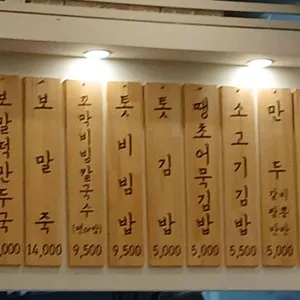 보말떡만두국
,000
보말죽
14,000
꼬막비빔칼국수
9,500
톳비빔밥
9,500
톳김밥
5,000
땡초어묵김밥
5,000
소고기김밥
5,500
만두
5,000